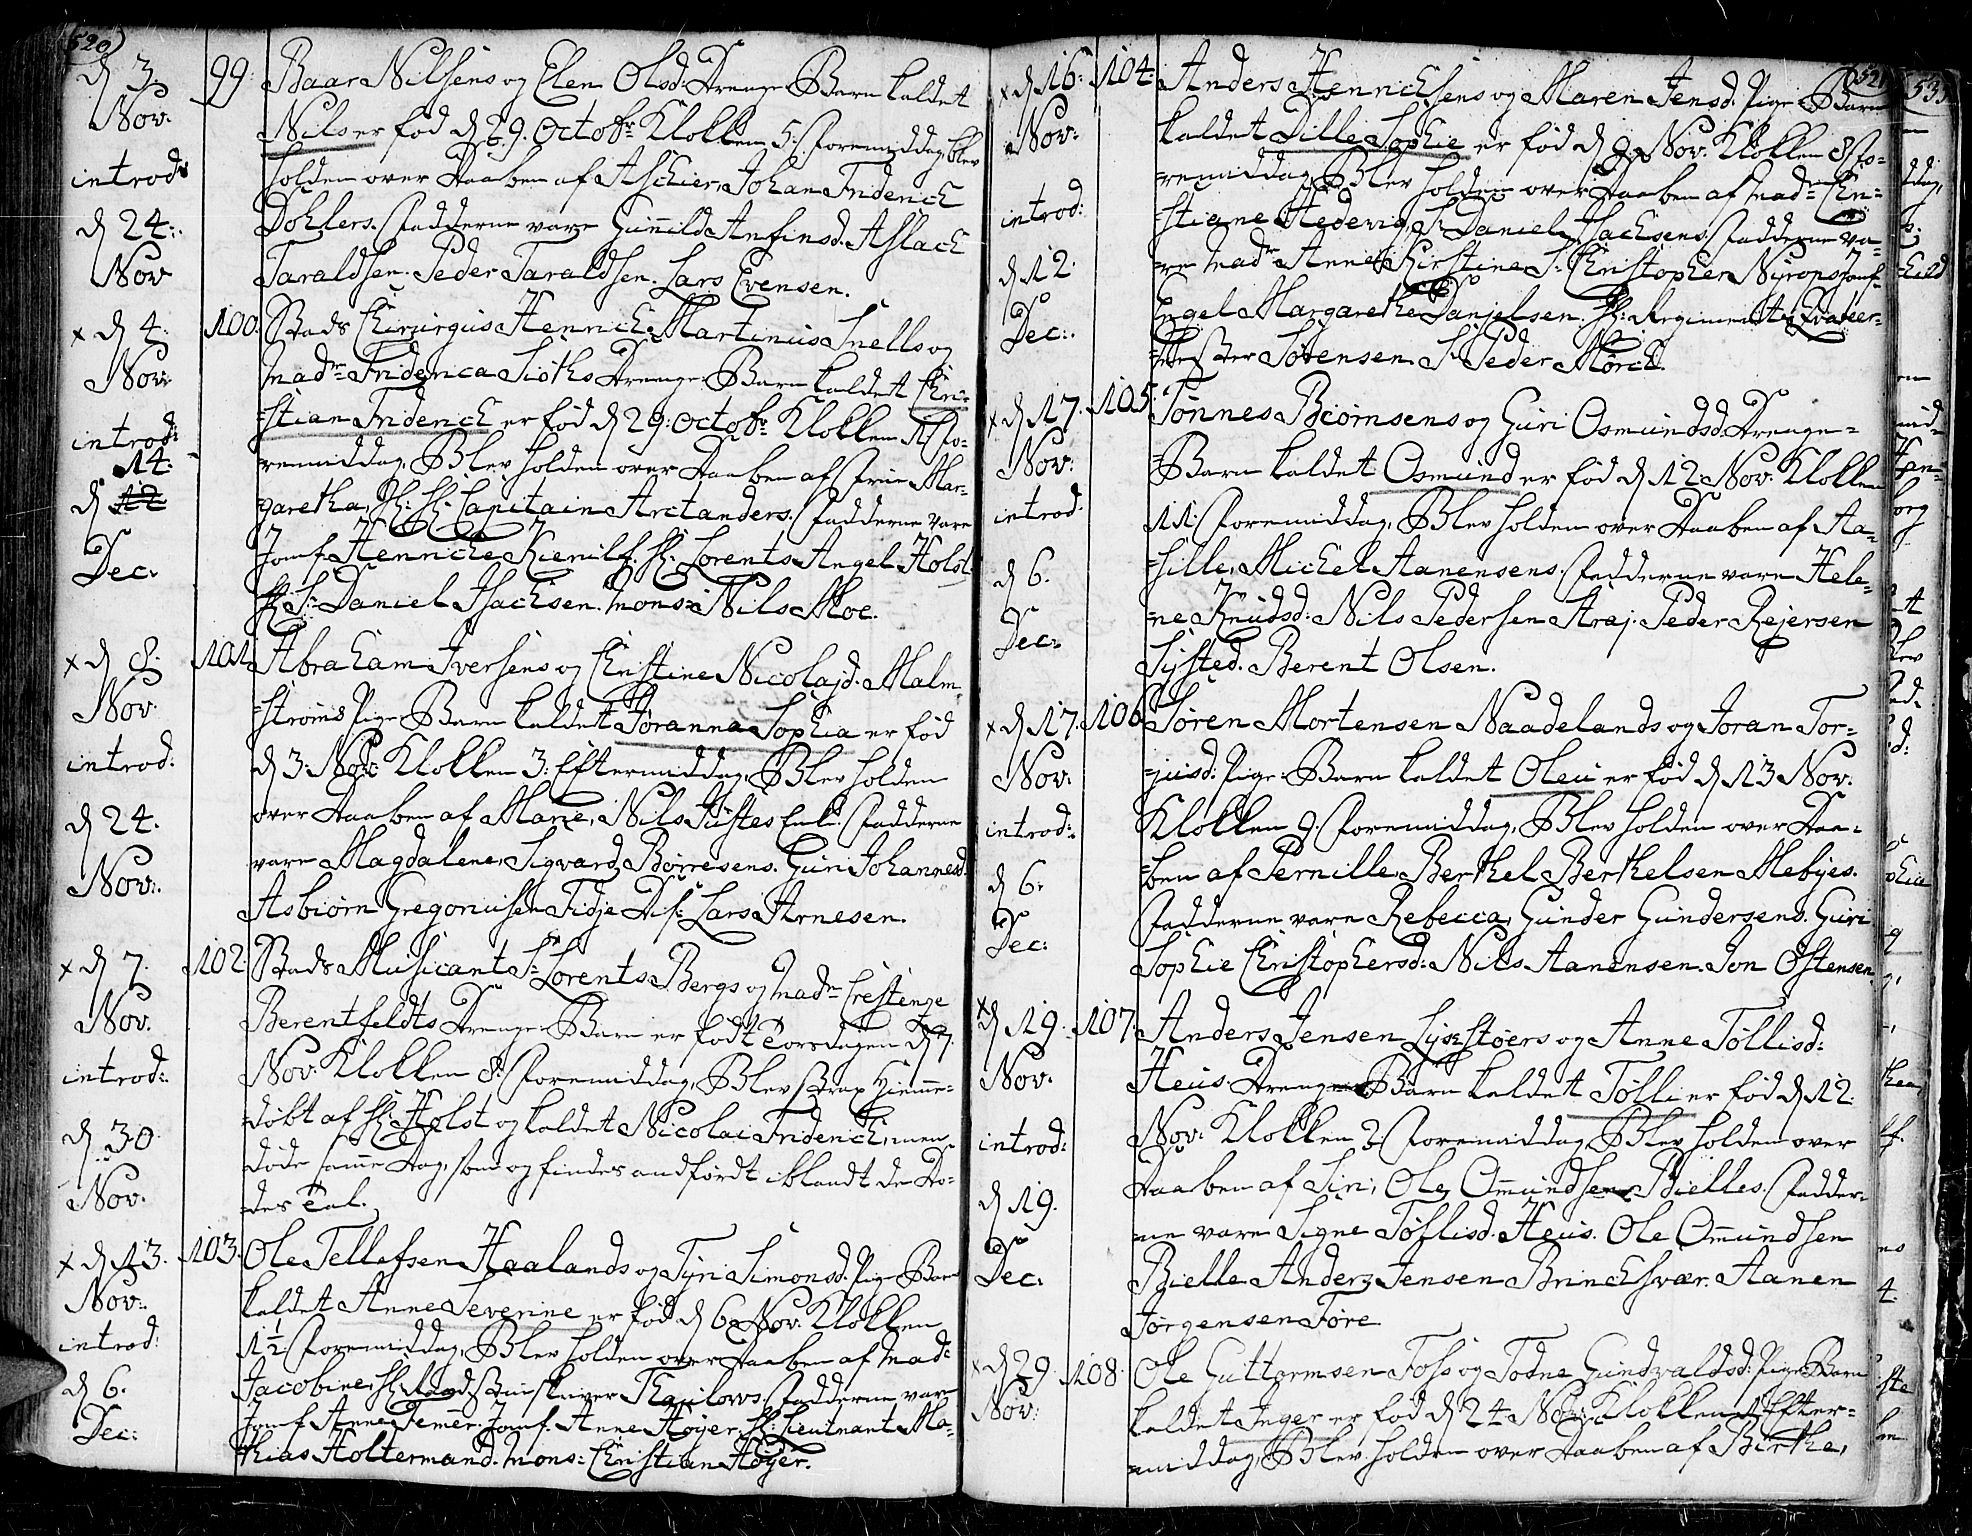 520)
d 3.
Nov:
introd:
d 24:
Nov
99.
Baar Nilsens og Elen Olsd: Drenge Barn kaldet
Nils er fød d 29. Octobr Klokken 5. Formiddag, blev
holden over Daaben af Aschier, Johan Friderich
Dohlers. Fadderne vare Gunnild Anfinsd. Aslach
Taraldsen. Peder Taraldsen. Lars Evensen.
x d 4.
Nov:
introd:
14:
d 12
Dec.
100.
Stads Chirurgus Henrich Martinus Snells og
Madme Friderica Sioths Drenge Barn kaldet Chri-
=stian Friderich er fød d 29: Octobr Klokken 1 Fo-
remiddag, Blev holden over Daaben af Frue Mar-
garetha, Hr: Capitain Arctanders. Fadderne vare
Jomf. Henriche Kienilf. Hr: Lorents Angel Holst.
Sr: Daniel Isachsen. Mons: Nils Moe.
x d 8.
Nov
introd:
d 24.
Nov:
101
Abraham Iversens og Christine Nicolajd. Malm-
=strøms Pige Barn kaldet Joranna Sophia er fød
d 3: Nov: Klokken 3: Eftermiddag, Blev holden
over Daaben af Marie, Nils Justes Enke. Fadderne
vare Magdalene, Sigvard Børresens. Guri Johannesd.
Asbiørn Gregoriusen Tidje Lars Arnesen.
x d 7.
Nov.
introd:
d 30
Nov.
102.
Stads Musicant Sr Lorents Bergs og Madme Crestenze
Berentfeldts Drenge Barn er født Torsdagen d 7.
Nov: Klokken 8: Formiddag, Blev strax Hiemme-
døbt af Hr: Holst og kaldet Nicolai Friderich, men
døde samme Dag, som og findes andførdt iblandt de Dø-
=des Tal.
x d 13.
Nov:
introd:
d 6.
Dec:
103.
Ole Tellefsen Haalands og Tyri Simonsd. Pige Barn
kaldet Anne Severine er fød d 6 Nov: Klokken
1½ Formiddag, Blev holden over Daaben af Mad:
Jacobine, Hr: Thaulows. Fadderne vare
Jomf. Anne Jomf. Anne Høyer. Hr: Lieutnant Ma-
thias Holtermand. Mons: Christian Høyer.
521
x d 16:
Nov:
introd:
d 12
Dec:
104.
Anders Henrichsens og Maren Jensd. Pige Barn
kaldet Dille Sophie er fød d 9. Nov. Klokken 8 Fo-
=remiddag, Blev holden over Daaben af Madme Chri-
=stiane Hedevig, Sr Daniel Isachsens. Fadderne va-
=re Madme Anne Kirstine, Sr: Christopher Nyrons Jomf.
Engel Margarethe Danielsen. Hr: Regiments Qvateer-
Mester Sørensen. Sr Peder Mørch.
x d 17.
Nov:
introd:
d 6.
Dec:
105.
Tønnes Biørnsens og Guri Osmundsd: Drenge-
=Barn kaldet Osmund er fød d 12 Nov. Klokken
11: Formiddag, Blev holden over Daaben af Aa-
=sille, Michel Aanensens. Fadderne vare Hele-
=ne Knudsd: Nils Pedersen Araj. Peder Rejersen
Systed. Berent Olsen.
x d 17.
Nov:
introd:
d 6.
Dec:
106
Søren Mortensen Naadelands og Joran Tor-
=juisd: Pige Barn kaldet Oleu er fød d 13 Nov:
Klokken 9. Formiddag, Blev holden over Daa-
=ben af Pernille, Berthel Berthelsen Mebyes.
Fadderne vare Rebecca, Gunder Gundersens. Guri
Sophie Christophersd: Nils Aanensen. Jon Ostensen
x
d 19.
Nov.
introd:
d 19.
Dec.
107.
Anders Jensen Lysestøers og Anne Tøllisd:
Heus. Drenge Barn kaldet Tølli er fød d 12
Nov: Klokken 3. Formiddag, Blev holden over
Daaben af Siri, Ole Omundsen Bielles. Fadder-
ne vare Signe Tøllisd. Heus. Ole Omundsen
Bielle Anders Jensen Brinchsvær. Aanen
Jørgensen Føre
x d 29
Nov:
108.
Ole Guttormsen Foss og Todne Gundvaldsd: Pige Barn
kaldet Inger er fød d 24 Nov: Klokken 1 Efter-
=middag, Blev holden over Daaben af Birthe,